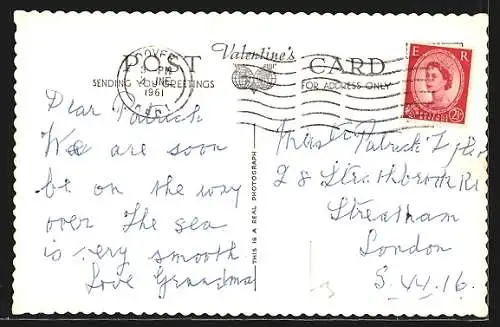 POST Valentine's CARD
SENDING YOU GREETINGS FOR ADDRESS ONLY
DOVER
PM
JNE
1961
E R
2½D
Dear Patrick
We are soon
be on the way
over The sea
is very smooth
Love Grandma
THIS IS A REAL PHOTOGRAPH
Mast Patrick
28 Strathbrook Rd
Streatham
London
S.W.16.